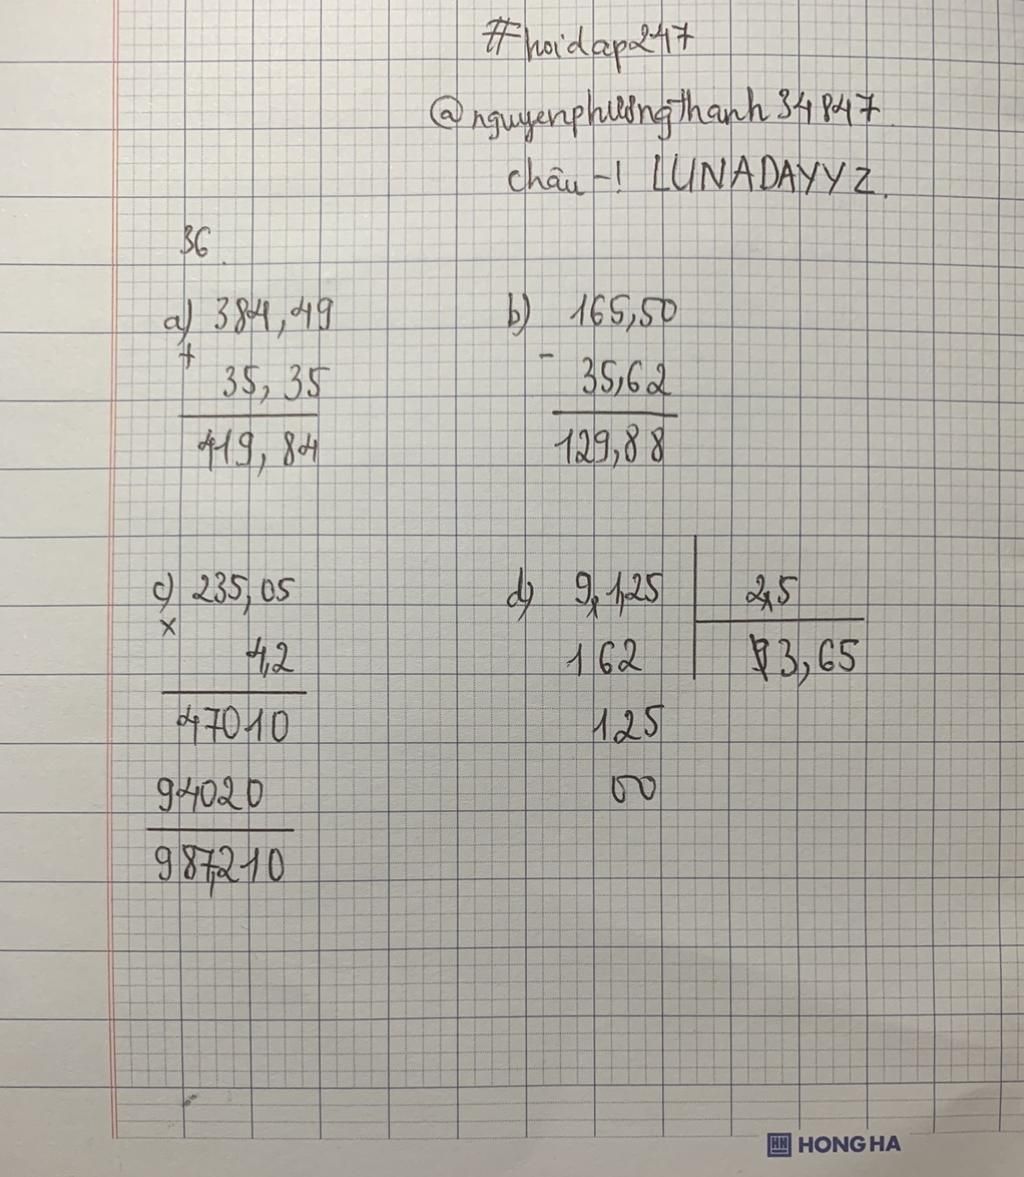 #hoidap247
@nguyenphuongthanh34847
châu-! LUNADAYYZ.
36.
a) 384,49
+
35,35
419,84
b) 165,50
-
35,62
129,88
c) 235,05
x
4,2
47010
94020
987,210
d) 9,1,25 2,5
162 3,65
125
00
HH HONG HA